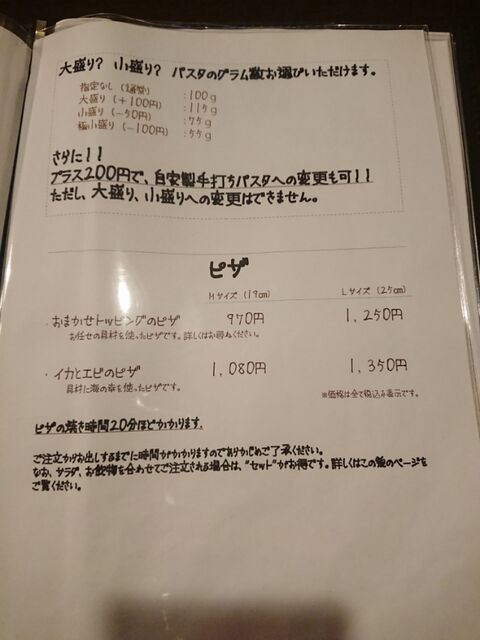 大盛り? 小盛り? パスタのグラム数お選びいただけます。
指定なし (通常) :100g
大盛り (+100円) :115g
小盛り (-50円) :75g
極小盛り (-100円) :55g
さらに!!
プラス200円で、自家製手打ちパスタへの変更も可!!
ただし、大盛り、小盛りへの変更はできません。
ピザ
Mサイズ (19cm) Lサイズ (25cm)
・おまかせトッピングのピザ 970円 1,250円
お任せの具材を使ったピザです。詳しくはお尋ねください。
・イカとエビのピザ 1,080円 1,350円
具材に海の幸を使ったピザです。
※価格は全て税込み表示です。
ピザの焼き時間20分ほどかかります。
ご注文からお出しするまでに時間がかかりますのであらかじめご了承ください。
なお、サラダ、お飲物を合わせてご注文される場合は、"セット"がお得です。詳しくはこの後のページを
ご覧ください。